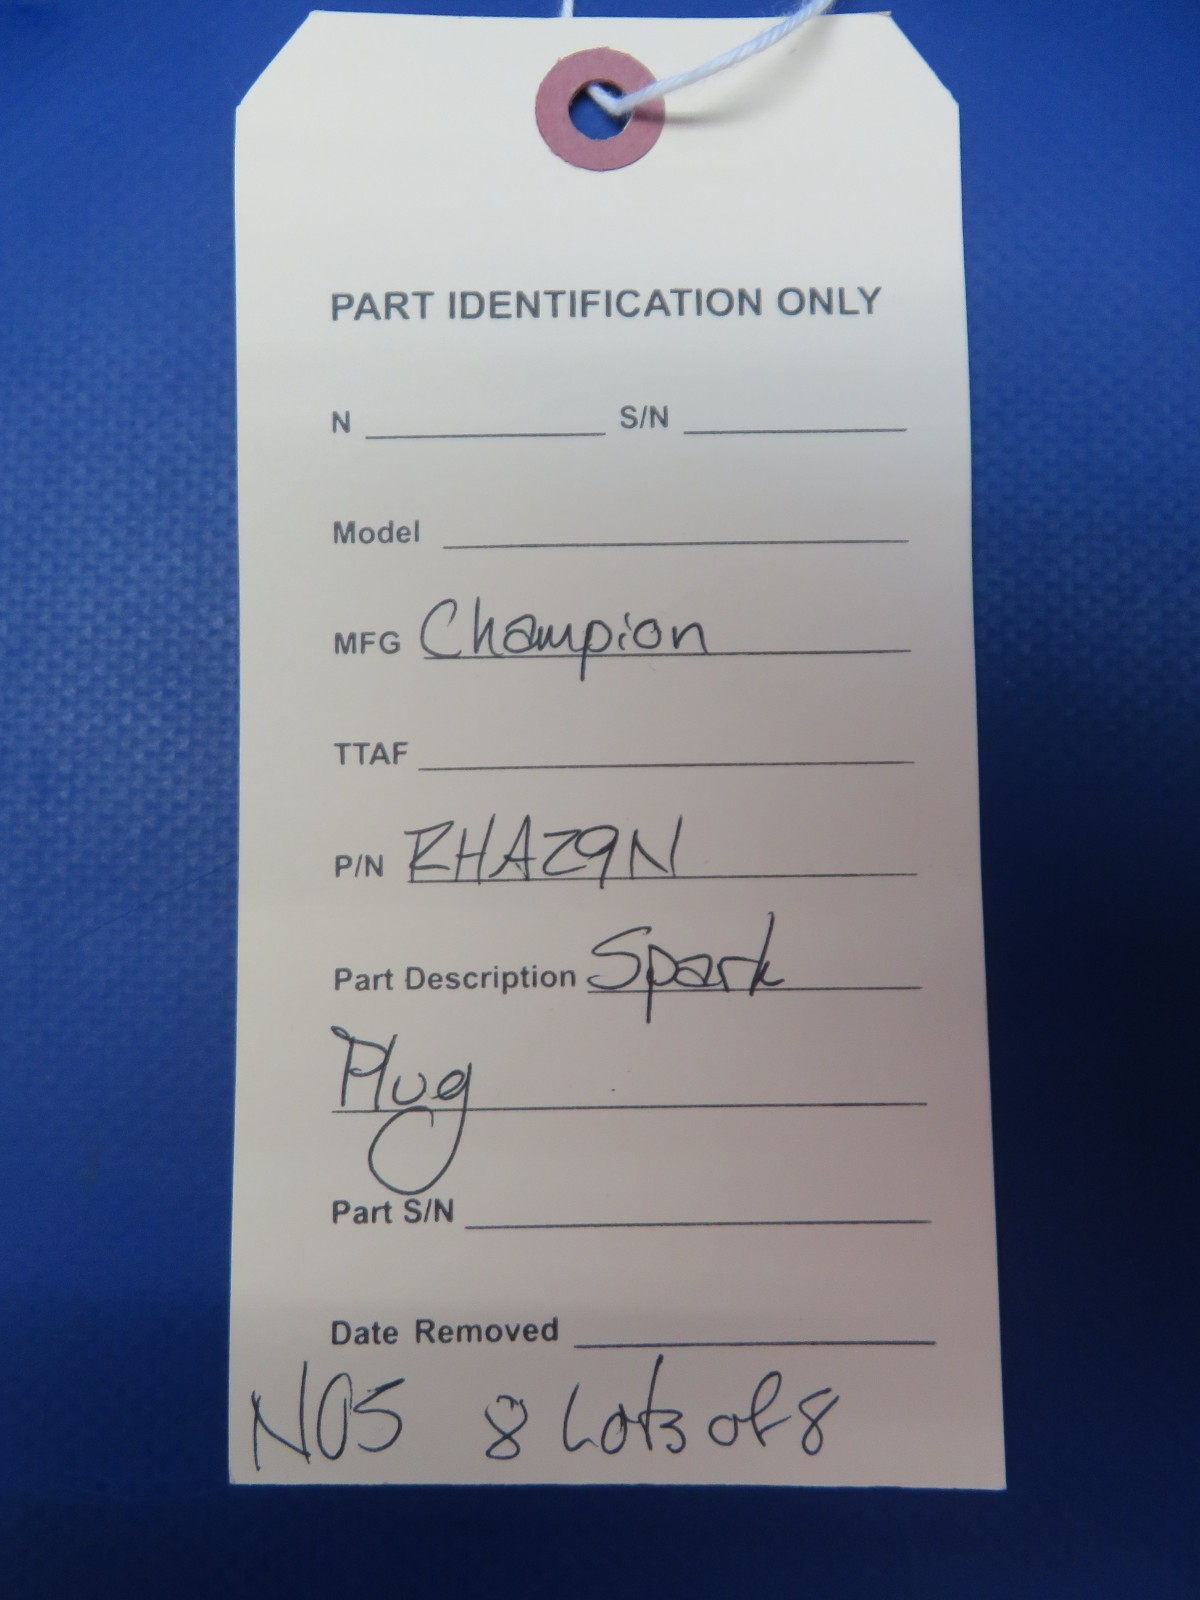 PART IDENTIFICATION ONLY
N S/N
Model
MFG Champion
TTAF
P/N RHA29N
Part Description Spark
Plug
Part S/N
Date Removed
NOS 8 Lots of 8